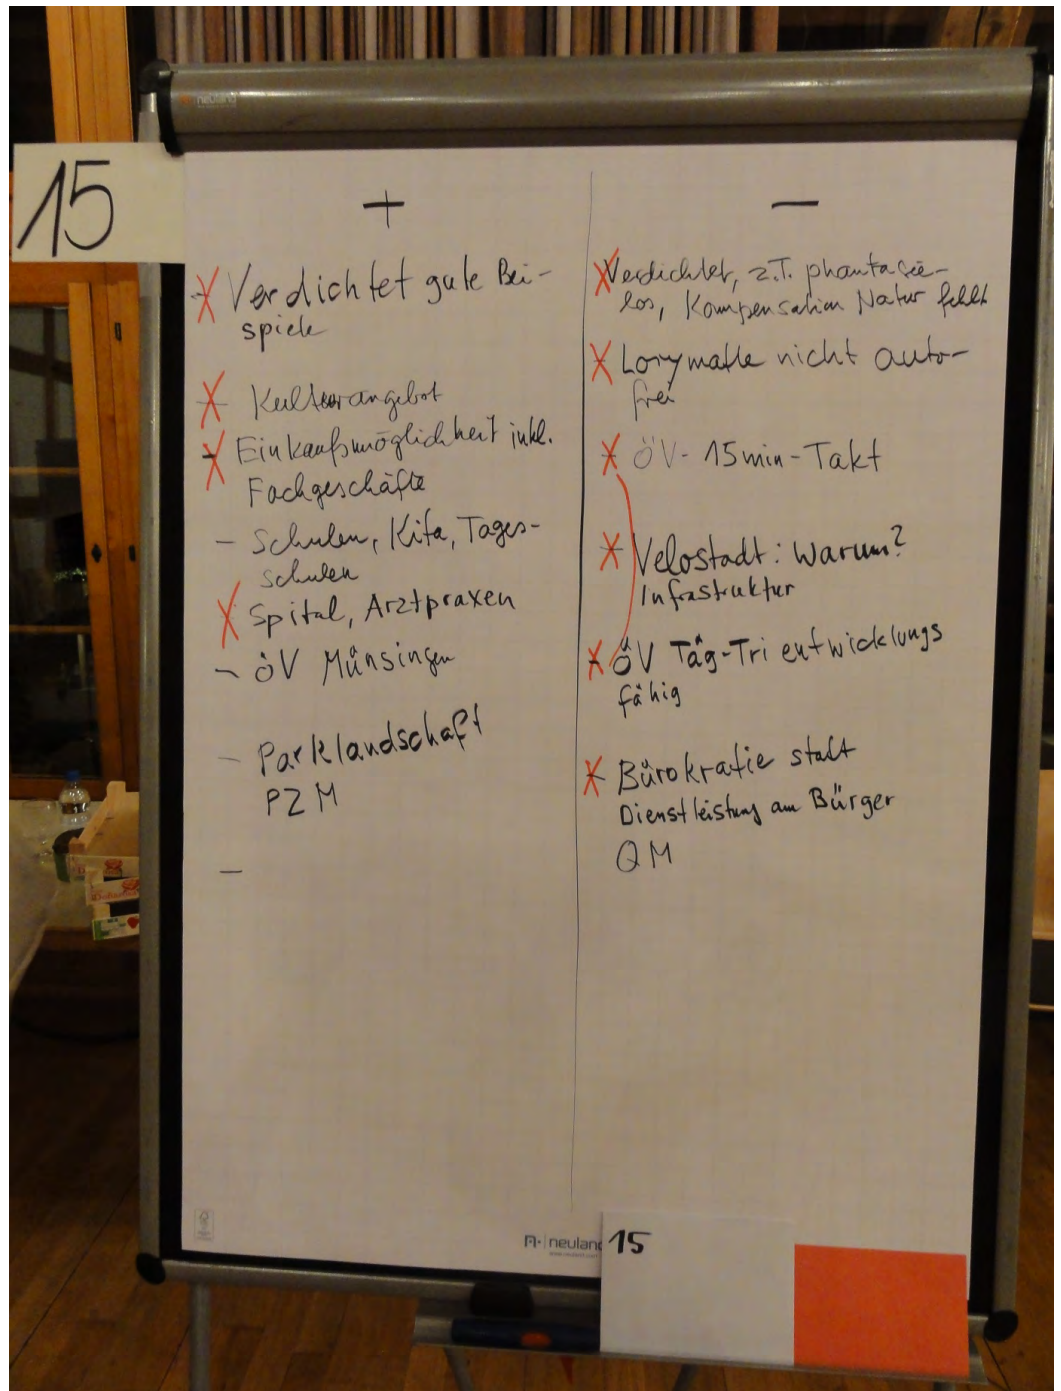 neuland
15
+
Verdichtet gute Bei-
spiele
Kulturangebot
Einkaufsmöglichkeit inkl.
Fachgeschäfte
- Schulen, Kita, Tages-
schulen
Spital, Arztpraxen
- öV Münsingen
- Parklandschaft
PZM
-
—
Verdichtet, z.T. phantasie-
los, Kompensation Natur fehlt
Lorymatte nicht auto-
frei
ÖV- 15min-Takt
Velostadt: Warum?
Infrastruktur
ÖV Täg-Tri entwicklungs
fähig
Bürokratie statt
Dienstleistung am Bürger
QM
neuland
15